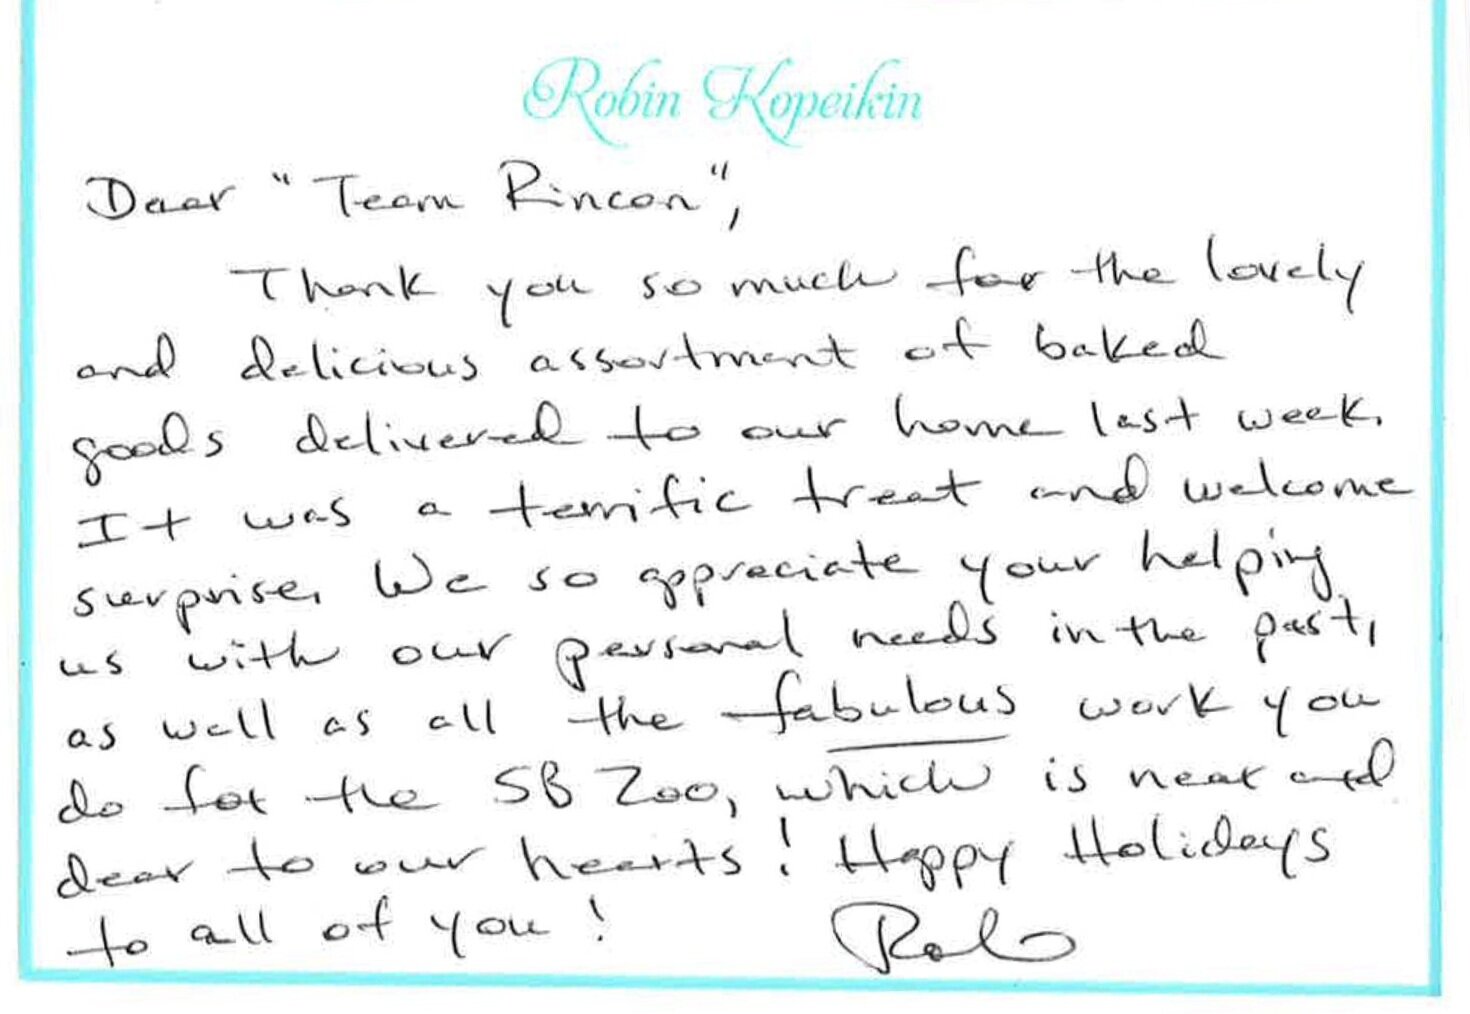 Robin Kopeikin
Dear "Team Rincon",
Thank you so much for the lovely
and delicious assortment of baked
goods delivered to our home last week.
It was a terrific treat and welcome
surprise. We so appreciate your helping
us with our personal needs in the past,
as well as all the fabulous work you
do for the SB Zoo, which is near and
dear to our hearts! Happy Holidays
to all of you! Robin